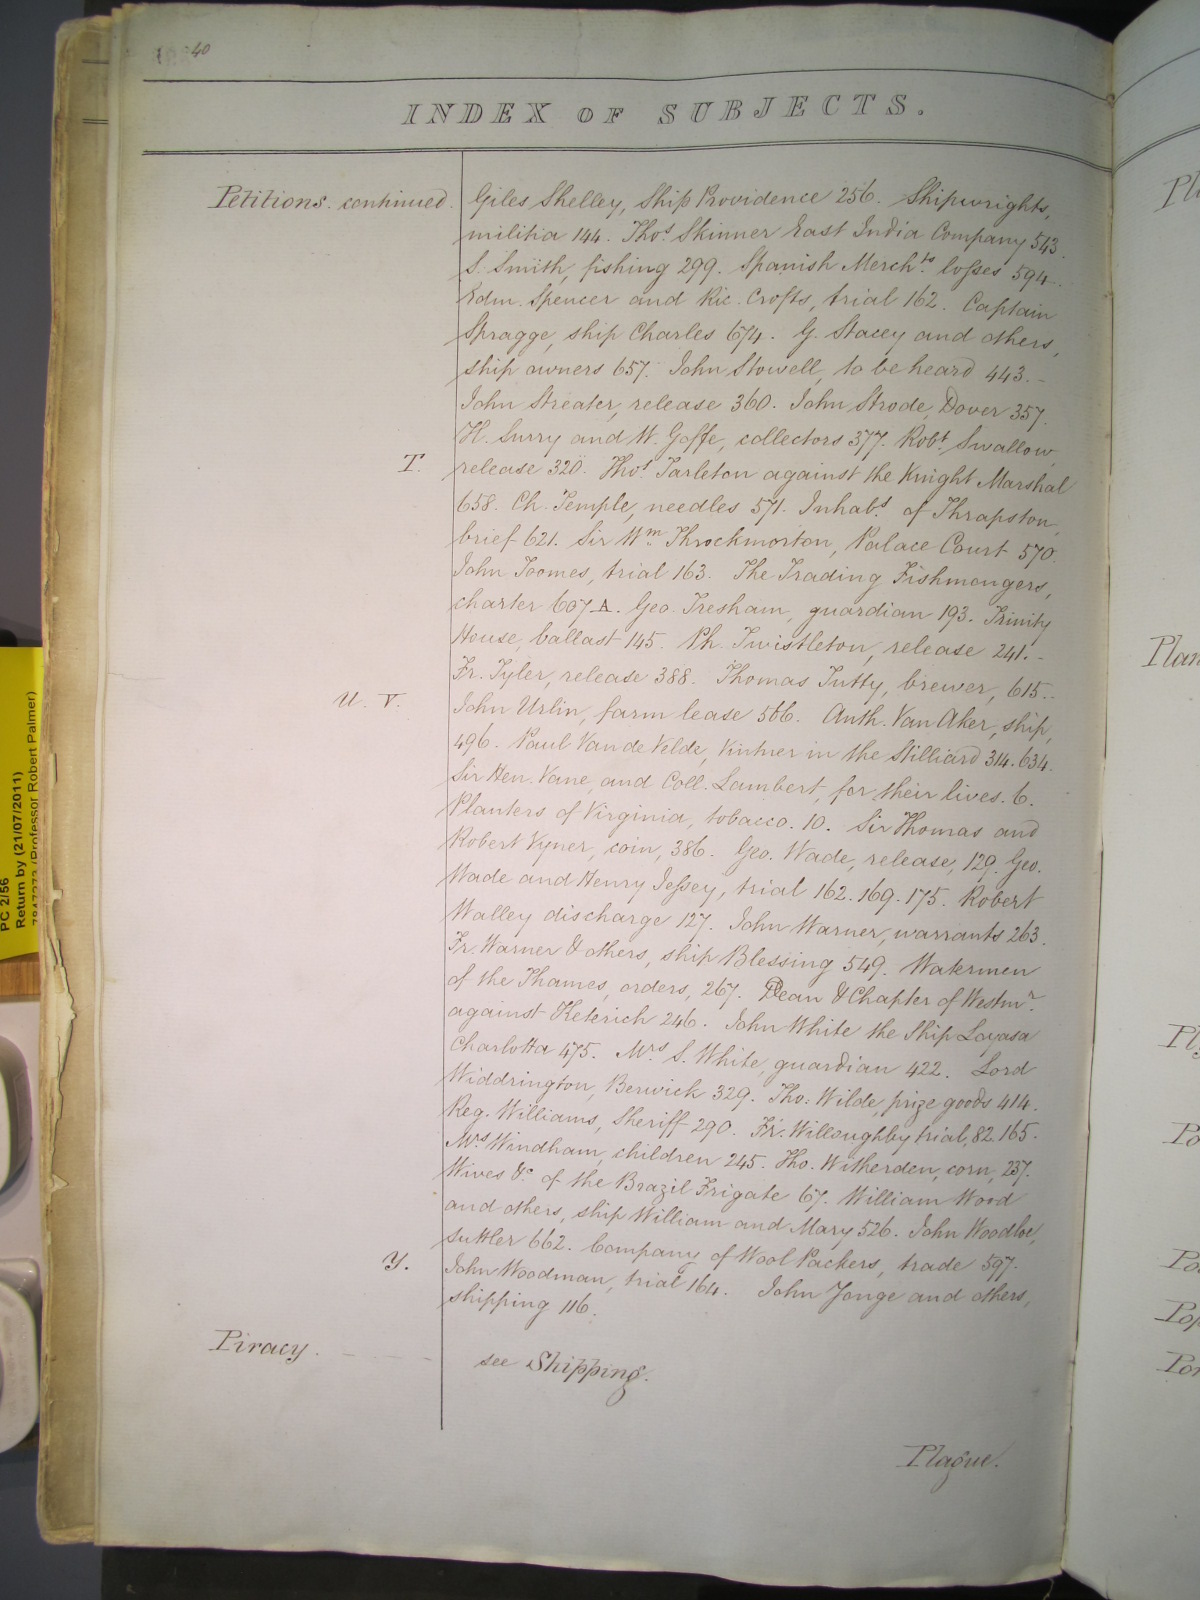 40
INDEX OF SUBJECTS.
Petitions. continued. Giles Shelley, Ship Providence 256. Shipwrights,
militia 144. Thos. Skinner East India Company 543.
S. Smith, fishing 299. Spanish Merchts. losses 594.
Edm. Spencer and Ric. Crofts, trial 162. Captain
Spragge, ship Charles 674. G. Stacey and others,
ship owners 657. John Stowell, to be heard 443.-
John Streater, release 360. John Strode, Dover 357.
H. Surry and W. Goffe, collectors 377. Robt. Swallow,
T. release 320. Thos. Tarleton against the Knight Marshal
658. Ch. Temple, needles 571. Inhabs. of Thrapston,
brief 621. Sir Wm. Throckmorton, Palace Court 570.
John Toomes, trial 163. The Trading Fishmongers,
charter 607.A. Geo. Tresham, guardian 193. Trinity
House, ballast 145. Ph. Twistleton, release 241.-
Fr. Tyler, release 388. Thomas Tutty, brewer, 615.-
U. V. John Urlin, farm lease 566. Anth. Van Aker, ship,
496. Paul Van de Velde, Vintner in the Stilliard 314. 634.
Sir Hen. Vane, and Coll. Lambert, for their lives. 6.
Planters of Virginia, tobacco. 10. Sir Thomas and
Robert Vyner, coin, 386. Geo. Wade, release, 129. Geo.
Wade and Henry Jessey, trial 162. 169. 175. Robert
Walley discharge 127. John Warner, warrants 263.
Fr. Warner & others, ship Blessing 549. Watermen
of the Thames, orders, 267. Dean & Chapter of Westmr.
against Keterich 246. John White the Ship Loyasa
Charlotta 475. Mrs S. White, guardian 422. Lord
Widdrington, Berwick 329. Tho: Wilde, prize goods 414.
Reg. Williams, Sheriff 290. Fr. Willoughby trial, 82. 165.
Mrs Windham, children 245. Tho. Witherden, corn, 237.
Wives &c of the Brazil Frigate 67. William Wood
and others, ship William and Mary 526. John Woodloe,
suttler 662. Company of Wool Packers, trade 597.
Y. John Woodman, trial 164. John Yonge and others,
shipping 116.
Piracy. see Shipping.
Plague.
PC 2/56
Return by (21/07/2011)
(Professor Robert Palmer)
Plan